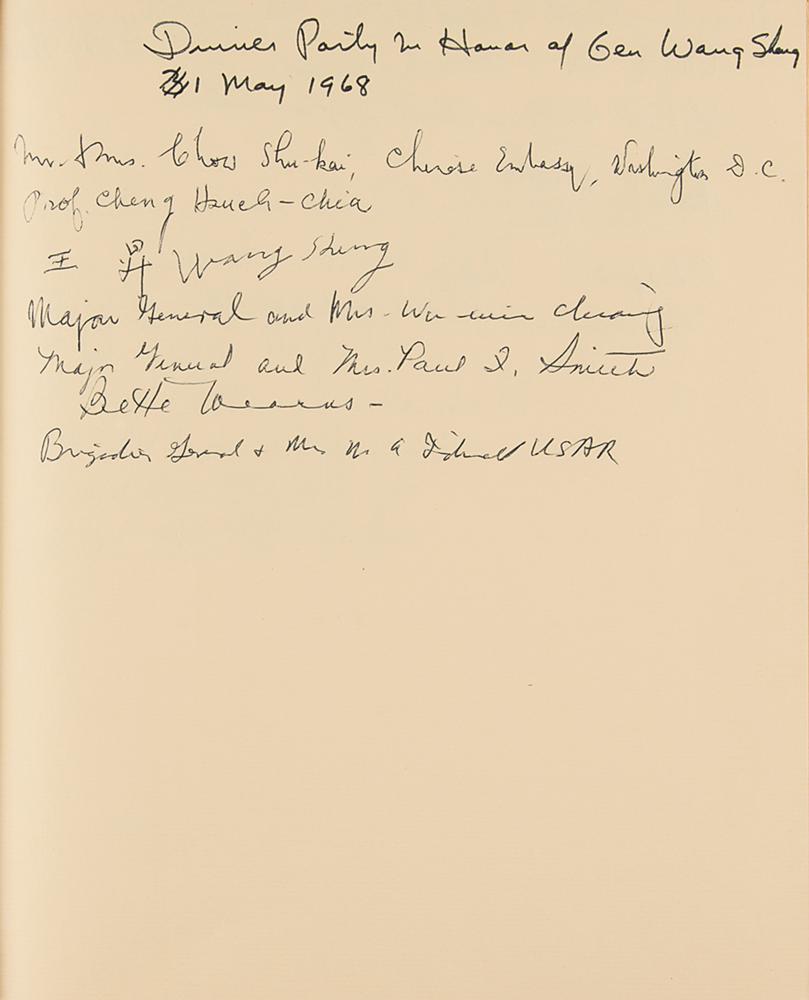 Dinner Party in Honor of Gen Wang Sheng
31 May 1968
Mr. & Mrs. Chow Shu-kai, Chinese Embassy, Washington D.C.
Prof. Cheng Hsueh-chia
王 昇 Wang Sheng
Major General and Mrs. Wu-min Chiang
Major General and Mrs. Paul Smith
Bette
Brigadier General & Mrs USAR